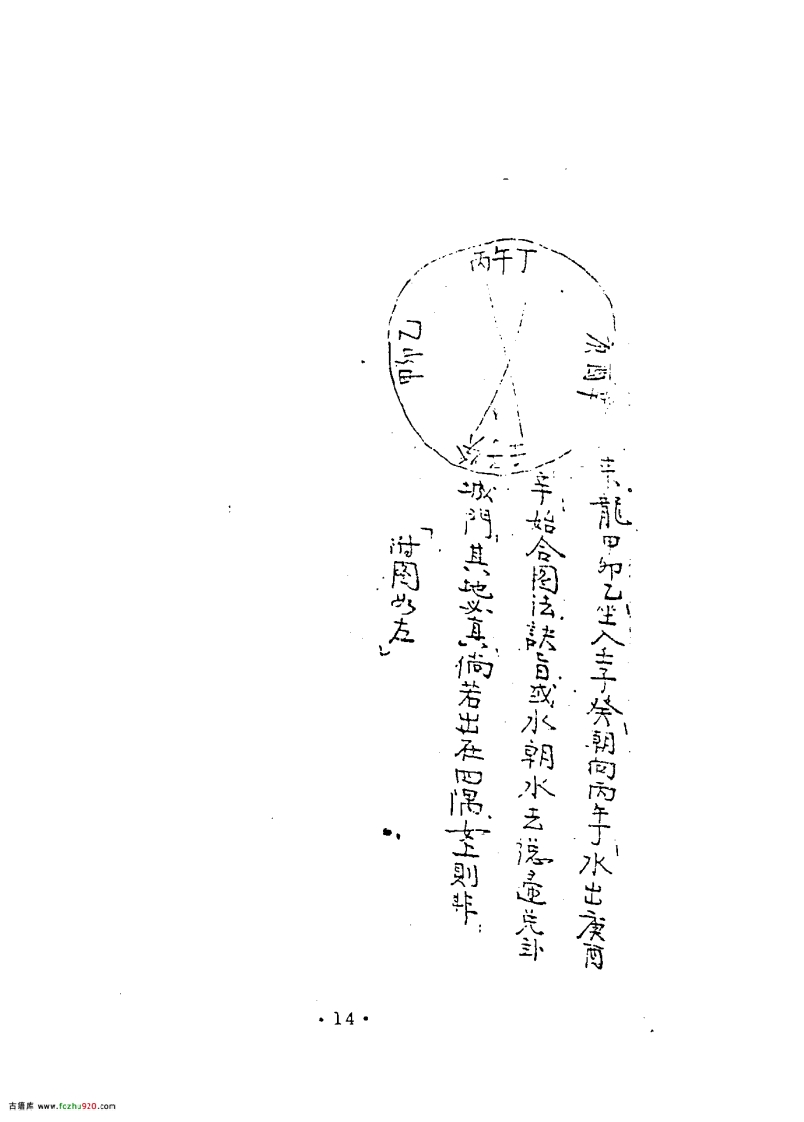 丙午丁
乙卯甲
庚酉辛
癸子壬
來龍甲卯乙坐入壬子癸朝向丙午丁水出庚酉
辛始合圖法訣旨或水朝水去總還兌卦
城門其地必真倘若出在四隅則非
「附圖如左」
·14·
古籍库 www.fozhu920.com